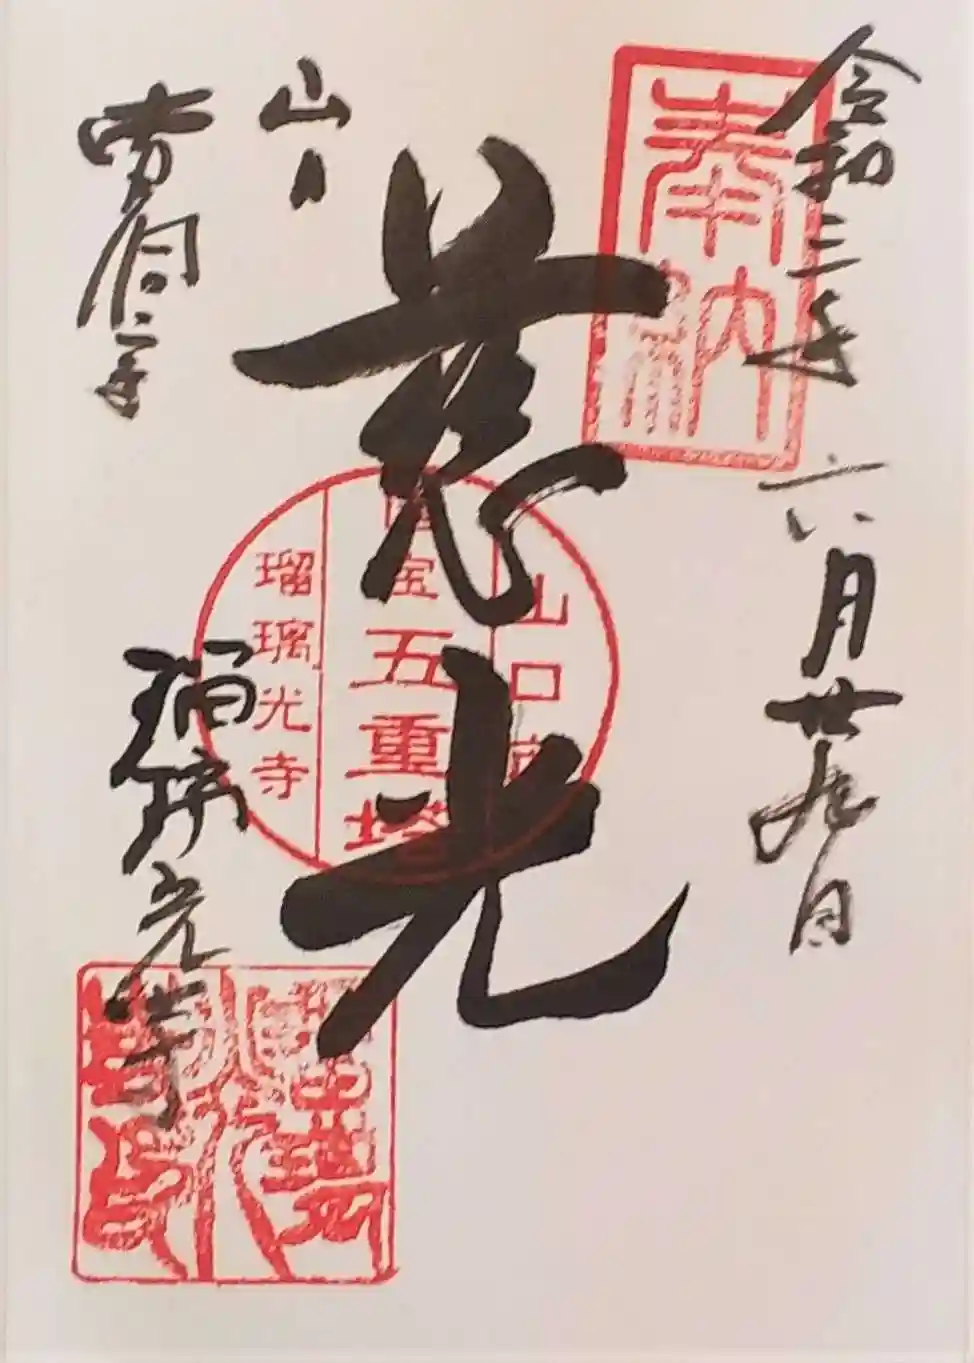 令和三年 六月廿九日
奉納
慈光
山口
山口市
国宝五重塔
瑠璃光寺
曹洞宗
瑠璃光寺